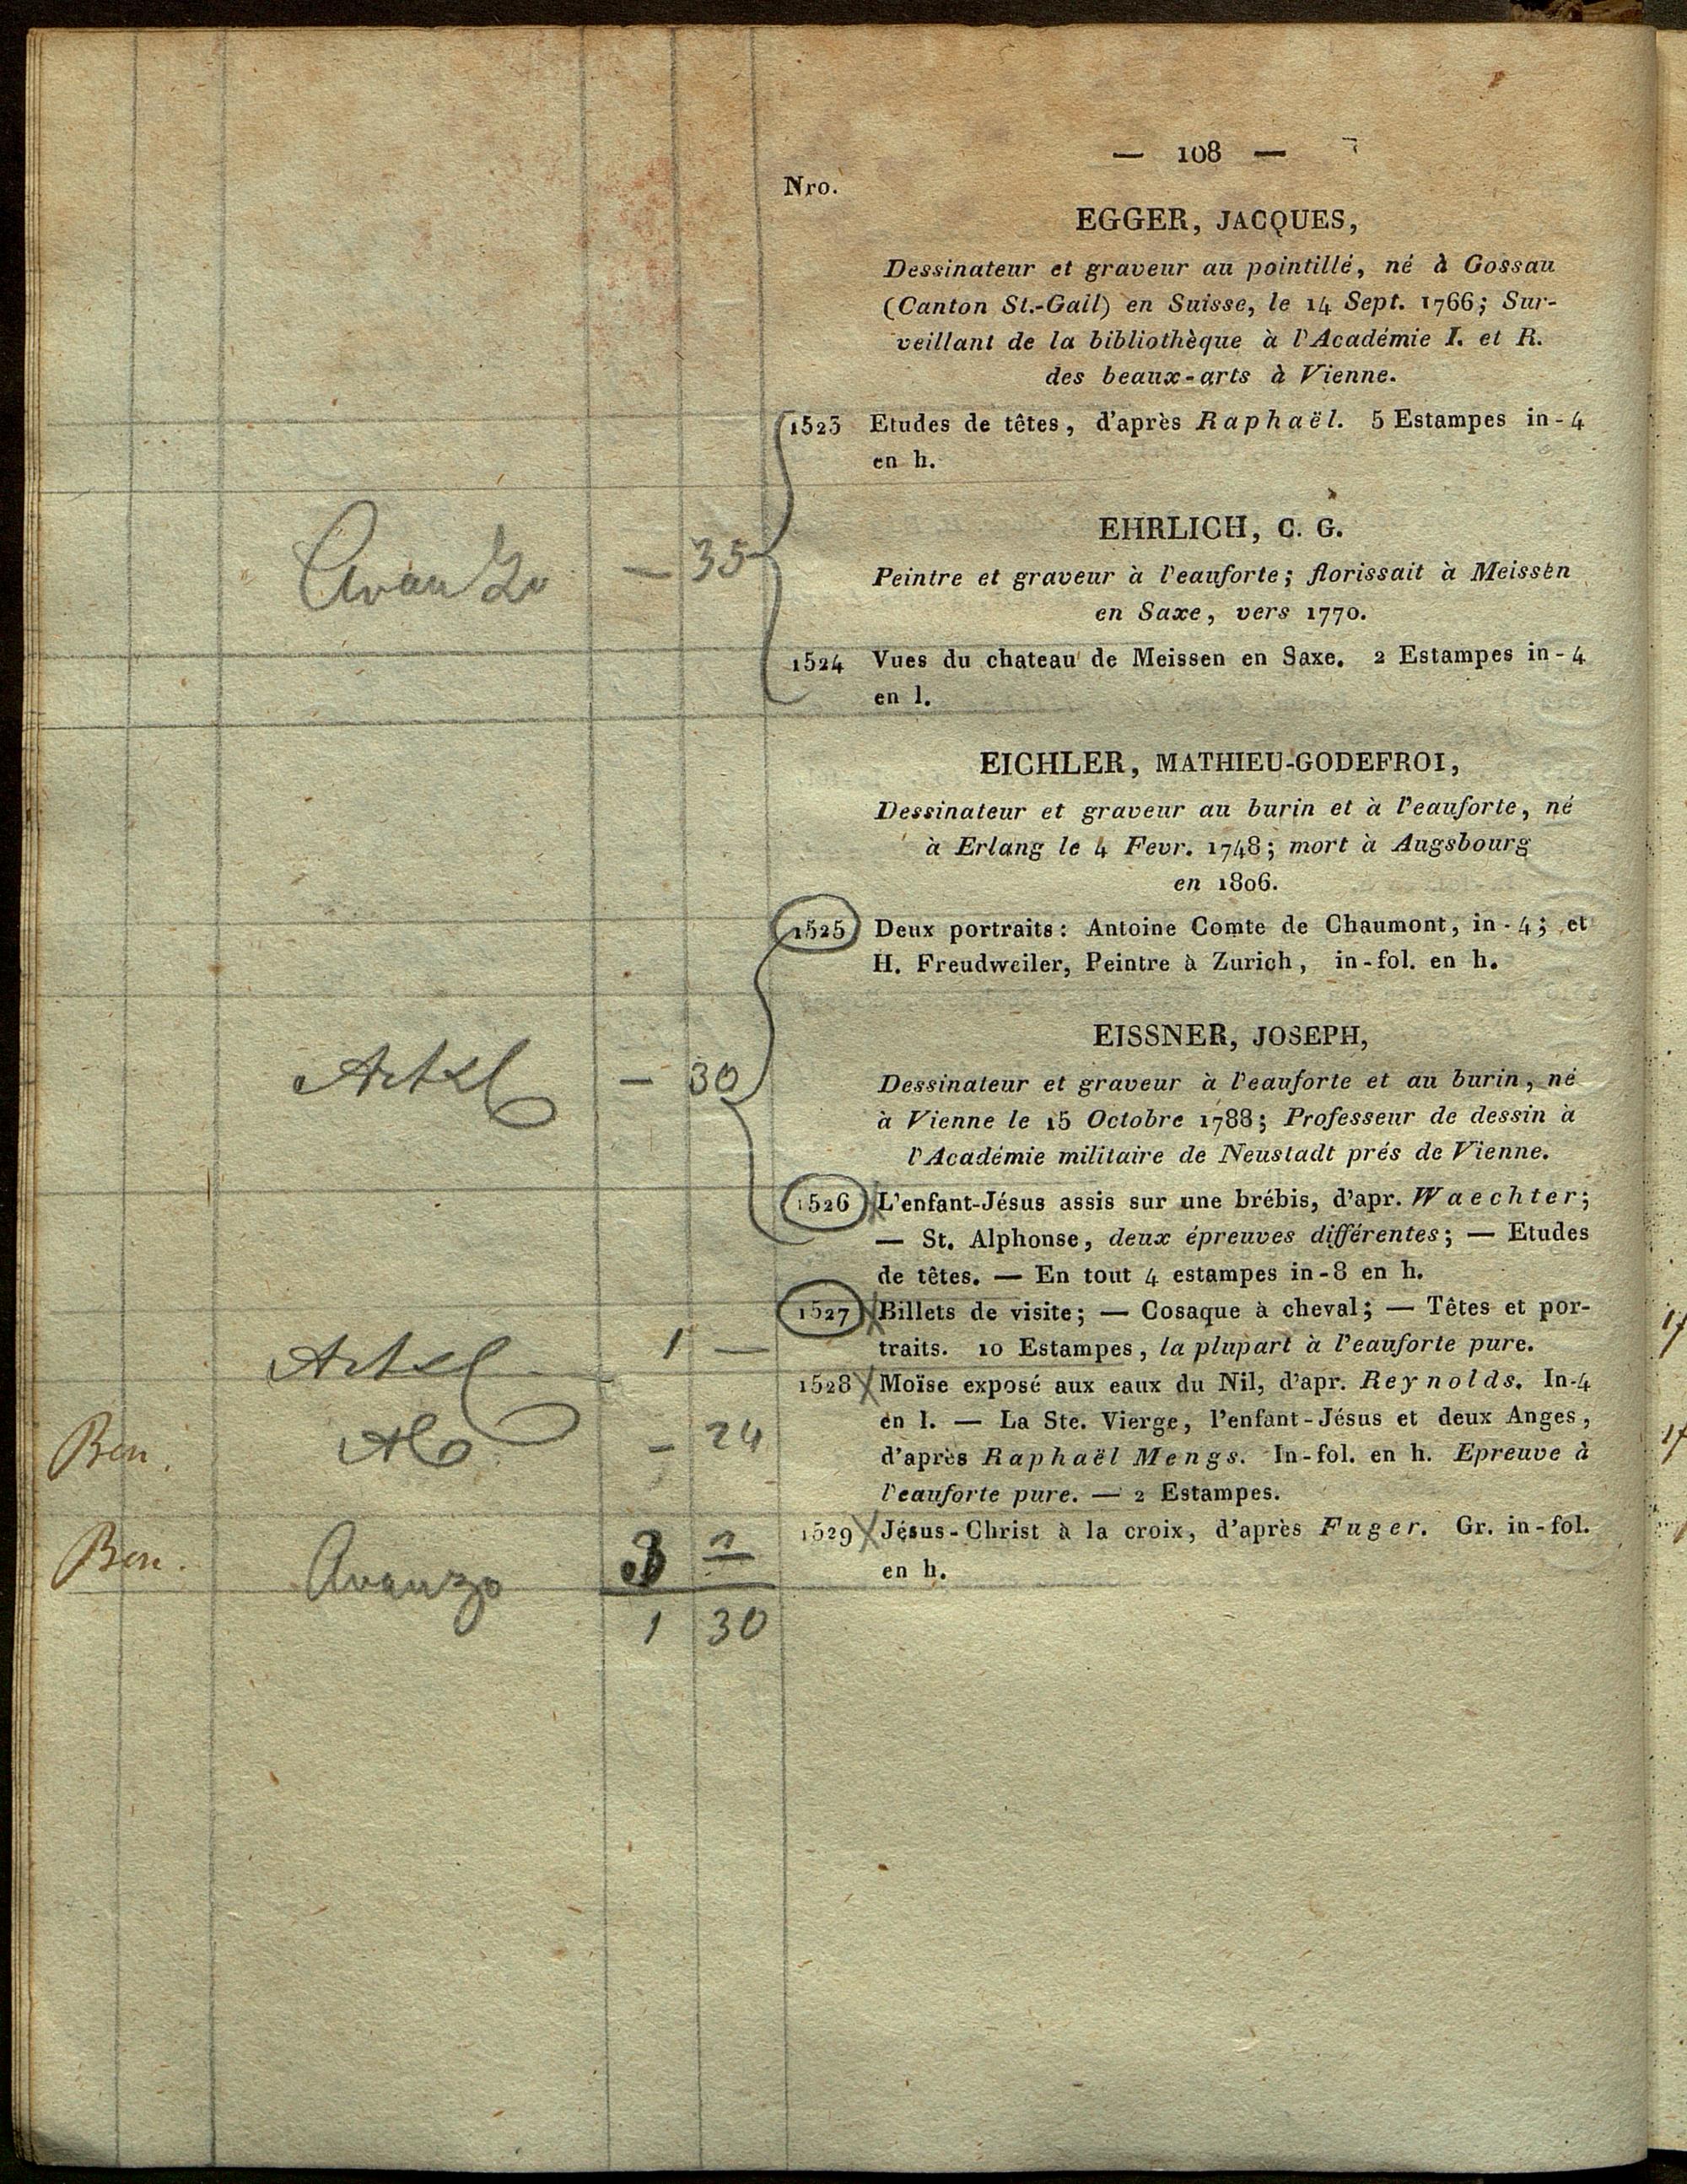 — 108 —
Nro.
EGGER, JACQUES,
Dessinateur et graveur au pointillé, né à Gossau
(Canton St.-Gall) en Suisse, le 14 Sept. 1766; Sur-
veillant de la bibliothèque à l'Académie I. et R.
des beaux-arts à Vienne.
1523 Etudes de têtes, d'après Raphaël. 5 Estampes in-4
en h.
EHRLICH, C. G.
Avanzo — 35
Peintre et graveur à l'eauforte; florissait à Meissen
en Saxe, vers 1770.
1524 Vues du chateau de Meissen en Saxe. 2 Estampes in-4
en l.
EICHLER, MATHIEU-GODEFROI,
Dessinateur et graveur au burin et à l'eauforte, né
à Erlang le 4 Fevr. 1748; mort à Augsbourg
en 1806.
1525 Deux portraits: Antoine Comte de Chaumont, in-4; et
H. Freudweiler, Peintre à Zurich, in-fol. en h.
EISSNER, JOSEPH,
— 30
Dessinateur et graveur à l'eauforte et au burin, né
à Vienne le 15 Octobre 1788; Professeur de dessin à
l'Académie militaire de Neustadt prés de Vienne.
1526 L'enfant-Jésus assis sur une brébis, d'apr. Waechter;
— St. Alphonse, deux épreuves différentes; — Etudes
de têtes. — En tout 4 estampes in-8 en h.
1527 Billets de visite; — Cosaque à cheval; — Têtes et por-
1 —
traits. 10 Estampes, la plupart à l'eauforte pure.
1528 Moïse exposé aux eaux du Nil, d'apr. Reynolds. In-4
en l. — La Ste. Vierge, l'enfant-Jésus et deux Anges,
Ben. — 24
d'après Raphaël Mengs. In-fol. en h. Epreuve à
l'eauforte pure. — 2 Estampes.
1529 Jésus-Christ à la croix, d'après Fuger. Gr. in-fol.
en h.
Ben. Avanzo
1 30